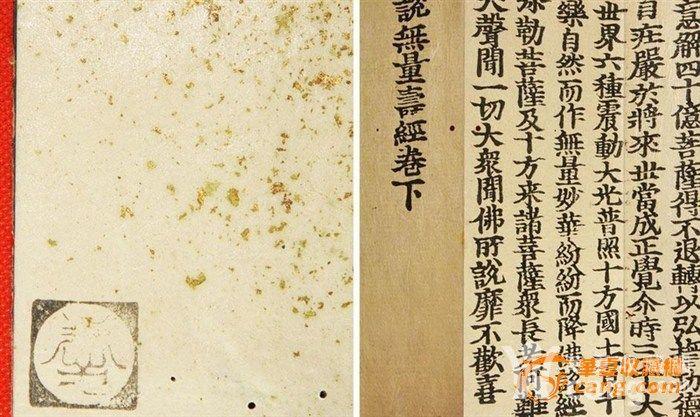 意解四十億菩薩得不退轉以弘誓功德
自莊嚴於將來世當成正覺尒時三千大
世界六種震動大光普照十方國土百
樂自然而作無量妙華紛紛而降佛說經
弥勒菩薩及十方来諸菩薩衆長老阿難
大聲聞一切大衆聞佛所說靡不歡喜
說無量壽經卷下
華夏收藏網
cang.com